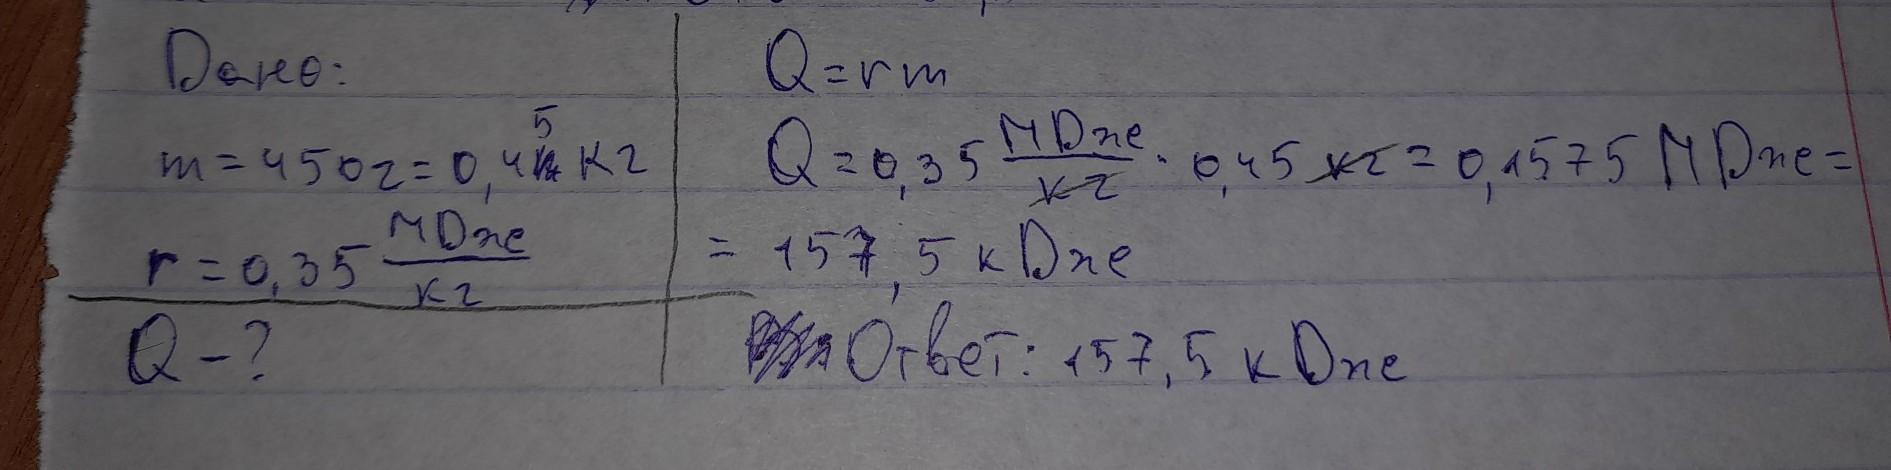 Дано:
m = 450г = 0,45 кг
r = 0,35 МДже/кг
Q - ?
Q = rm
Q = 0,35 МДже/кг · 0,45 кг = 0,1575 МДже =
= 157,5 кДже
Ответ: 157,5 кДже